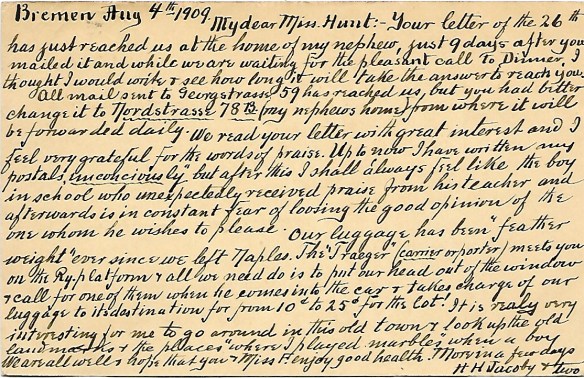 Bremen Aug 4th 1909. My dear Miss. Hunt:- Your letter of the 26th
has just reached us at the home of my nephew, just 9 days after you
mailed it and while we are waiting for the pleasant call To Dinner, I
thought I would write & see how long it will take the answer to reach you.
All mail sent to Georgstrasse 59 has reached us, but you had better
change it to Nordstrasse 78B (my nephews home) from where it will
be forwarded daily. We read your letter with great interest and I
feel very grateful for the words of praise. Up to now I have written my
postals, unconciously but after this I shall always feel like the boy
in school who unexpectedly received praise from his teacher and
afterwards is in constant fear of loosing the good opinion of the
one whom he wishes to please. Our luggage has been "feather
weight" ever since we left Naples. The "Traeger" (carrier or porter) meets you
on the Ry. platform & all we need do is to put our head out of the window
& call for one of them when he comes into the car & takes charge of our
luggage to its destination for from 10¢ to 25¢ for the lot! It is realy very
interesting for me to go around in this old town & look up the old
landmarks & the places "where I played marbles" when a boy
We are all well & hope that you & Miss H enjoy good health. More in a few days
H H Jacoby & two